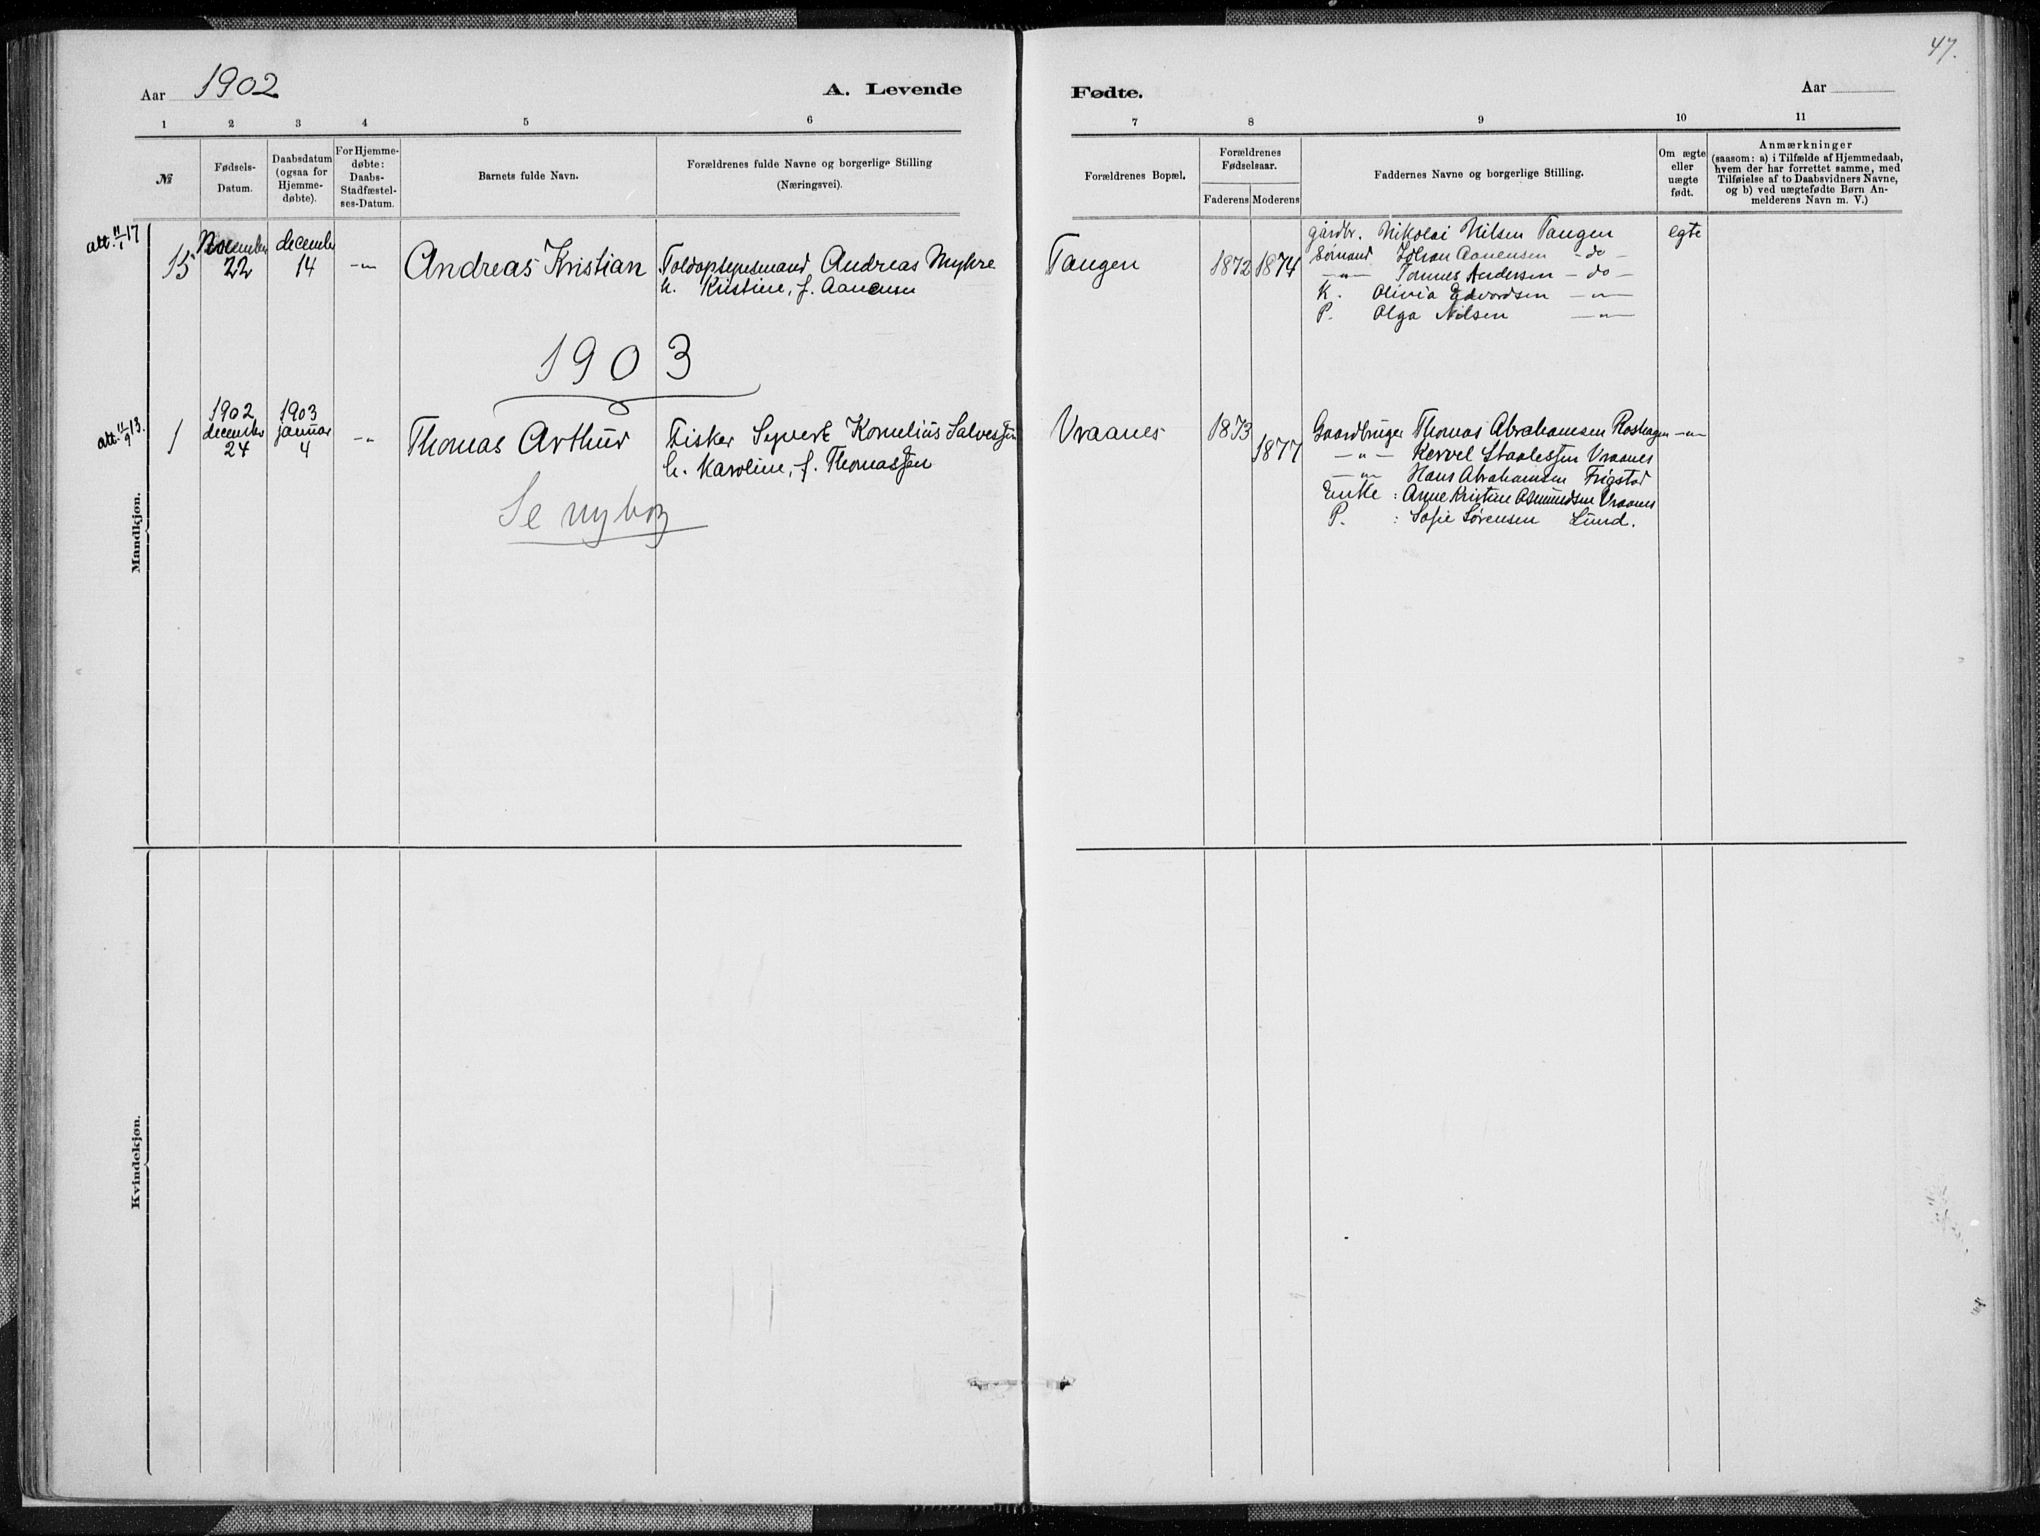 47.
Aar 1902
A. Levende
Fødte.
Aar
1 2 3 4 5 6
7 8 9 10 11
№
Fødsels-
Datum.
Daabsdatum
(ogsaa for
Hjemme-
døbte).
For Hjemme-
døbte:
Daabs-
Stadfæstel-
ses-Datum.
Barnets fulde Navn.
Forældrenes fulde Navne og borgerlige Stilling
(Næringsvei).
Forældrenes Bopæl.
Forældrenes
Fødselsaar.
Faderens Moderens
Faddernes Navne og borgerlige Stilling.
Om ægte
eller
uægte
født.
Anmærkninger
(saasom: a) i Tilfælde af Hjemmedaab,
hvem der har forrettet samme, med
Tilføielse af to Daabsvidners Navne,
og b) ved uægtefødte Børn An-
melderens Navn m. V.)
Mandkjøn.
att. 11/1 17
15
November
22
december
14
-"-
Andreas Kristian
Toldopsynsmand Andreas Myhre
h. Kristine, f. Aanensen
Tangen
1872 1874
gårdbr. Nikolai Nilsen Tangen
Sømand Johan Aanensen - do -
-"- Tønnes Andersen - do -
K. Olivia Edvardsen -"-
P. Olga Nilsen -"-
egte
1903
att. 11/9 13.
1
1902
december
24
1903
januar
4
-"-
Thomas Arthur
Fisker Syvert Kornelius Salvessen
h. Karoline, f. Thomassen
Vraanes
1873
1877
Gaardbruger Thomas Abrahamsen Roshagen
-"- Kervel Staalessen Vraanes
-"- Hans Abrahamsen Frigstad
Enke : Anne Kristine Asmundsen Vraanes
P. : Sofie Sørensen Lund.
-"-
Se ny bog
Kvindekjøn.